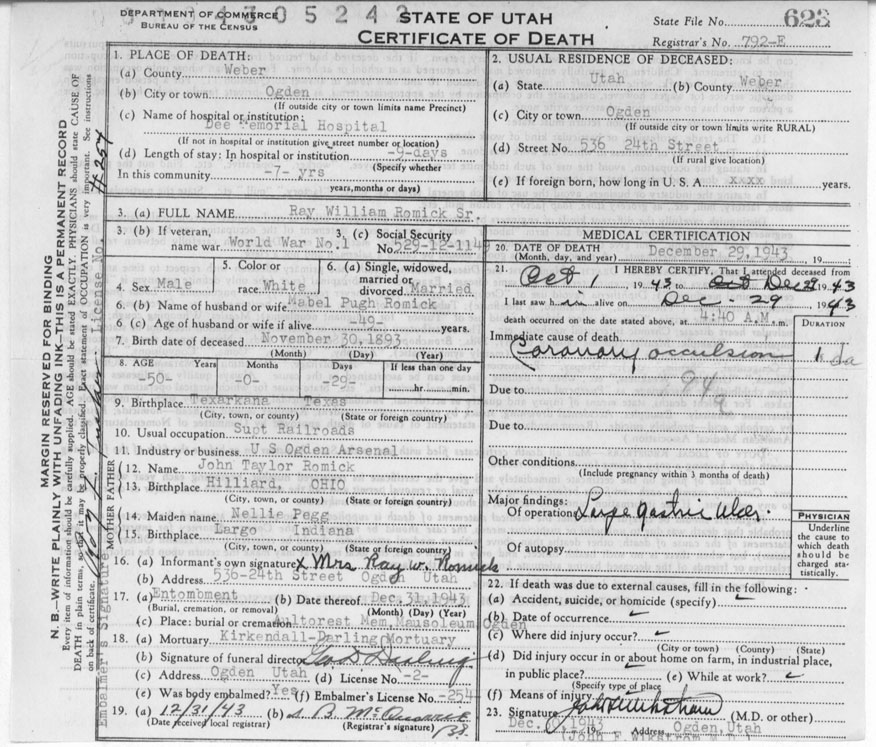 DEPARTMENT OF COMMERCE
BUREAU OF THE CENSUS
STATE OF UTAH
CERTIFICATE OF DEATH
State File No. 623
Registrar's No. 792-E
MARGIN RESERVED FOR BINDING
N. B.—WRITE PLAINLY WITH UNFADING INK—THIS IS A PERMANENT RECORD
Every item of information should be carefully supplied. AGE should be stated EXACTLY. PHYSICIANS should state CAUSE OF
DEATH in plain terms, so that it may be properly classified. Exact statement of OCCUPATION is very important. See instructions
on back of certificate.
Embalmer's Signature License No. #254
1. PLACE OF DEATH:
(a) County Weber
(b) City or town Ogden
(If outside city or town limits name Precinct)
(c) Name of hospital or institution:
Dee Memorial Hospital
(If not in hospital or institution give street number or location)
(d) Length of stay: In hospital or institution -9-days
(Specify whether
In this community -7- yrs
years, months or days)
2. USUAL RESIDENCE OF DECEASED:
(a) State Utah (b) County Weber
(c) City or town Ogden
(If outside city or town limits write RURAL)
(d) Street No. 536 24th Street
(If rural give location)
(e) If foreign born, how long in U. S. A. xxxx years.
3. (a) FULL NAME Ray William Romick Sr.
3. (b) If veteran, name war World War No.1
3. (c) Social Security No. 529-12-1149
4. Sex Male
5. Color or race White
6. (a) Single, widowed, married or divorced Married
6. (b) Name of husband or wife Mabel Pugh Romick
6. (c) Age of husband or wife if alive -49- years.
7. Birth date of deceased November 30, 1893
(Month) (Day) (Year)
8. AGE Years Months Days If less than one day
-50- -0- -29- hr. min.
9. Birthplace Texarkana Texas
(City, town, or county) (State or foreign country)
10. Usual occupation Supt Railroads
11. Industry or business U S Ogden Arsenal
FATHER
12. Name John Taylor Romick
13. Birthplace Hilliard, OHIO
(City, town, or county) (State or foreign country)
MOTHER
14. Maiden name Nellie Pegg
15. Birthplace Largo Indiana
(City, town, or county) (State or foreign country)
16. (a) Informant's own signature x Mrs Ray W. Romick
(b) Address 536-24th Street Ogden Utah
17. (a) Entombment (b) Date thereof Dec.31,1943
(Burial, cremation, or removal) (Month) (Day) (Year)
(c) Place: burial or cremation Aultorest Mem.Mausoleum,Ogden
18. (a) Mortuary Kirkendall-Darling Mortuary
(b) Signature of funeral director Geo D Darling
(c) Address Ogden Utah (d) License No. -2-
(e) Was body embalmed? Yes (f) Embalmer's License No. -254
19. (a) 12/31/43 (b)
(Date received local registrar) (Registrar's signature)
MEDICAL CERTIFICATION
20. DATE OF DEATH December 29,1943
(Month, day, and year) 19
21. I HEREBY CERTIFY, That I attended deceased from
Oct 1, 1943 to Oct Dec 29 1943
I last saw him alive on Dec. 29 1943
death occurred on the date stated above, at 4:40 A.M. m.
DURATION
Immediate cause of death
Coronary occulsion 1 da
94a
Due to
Due to
Other conditions
(Include pregnancy within 3 months of death)
Major findings:
Of operation Large gastric ulcer.
Of autopsy
PHYSICIAN
Underline
the cause to
which death
should be
charged sta-
tistically.
22. If death was due to external causes, fill in the following:
(a) Accident, suicide, or homicide (specify)
(b) Date of occurrence
(c) Where did injury occur?
(City or town) (County) (State)
(d) Did injury occur in or about home on farm, in industrial place,
in public place? (e) While at work?
(Specify type of place
(f) Means of injury
23. Signature (M.D. or other)
Dec.30,1943 19 Address Ogden, Utah